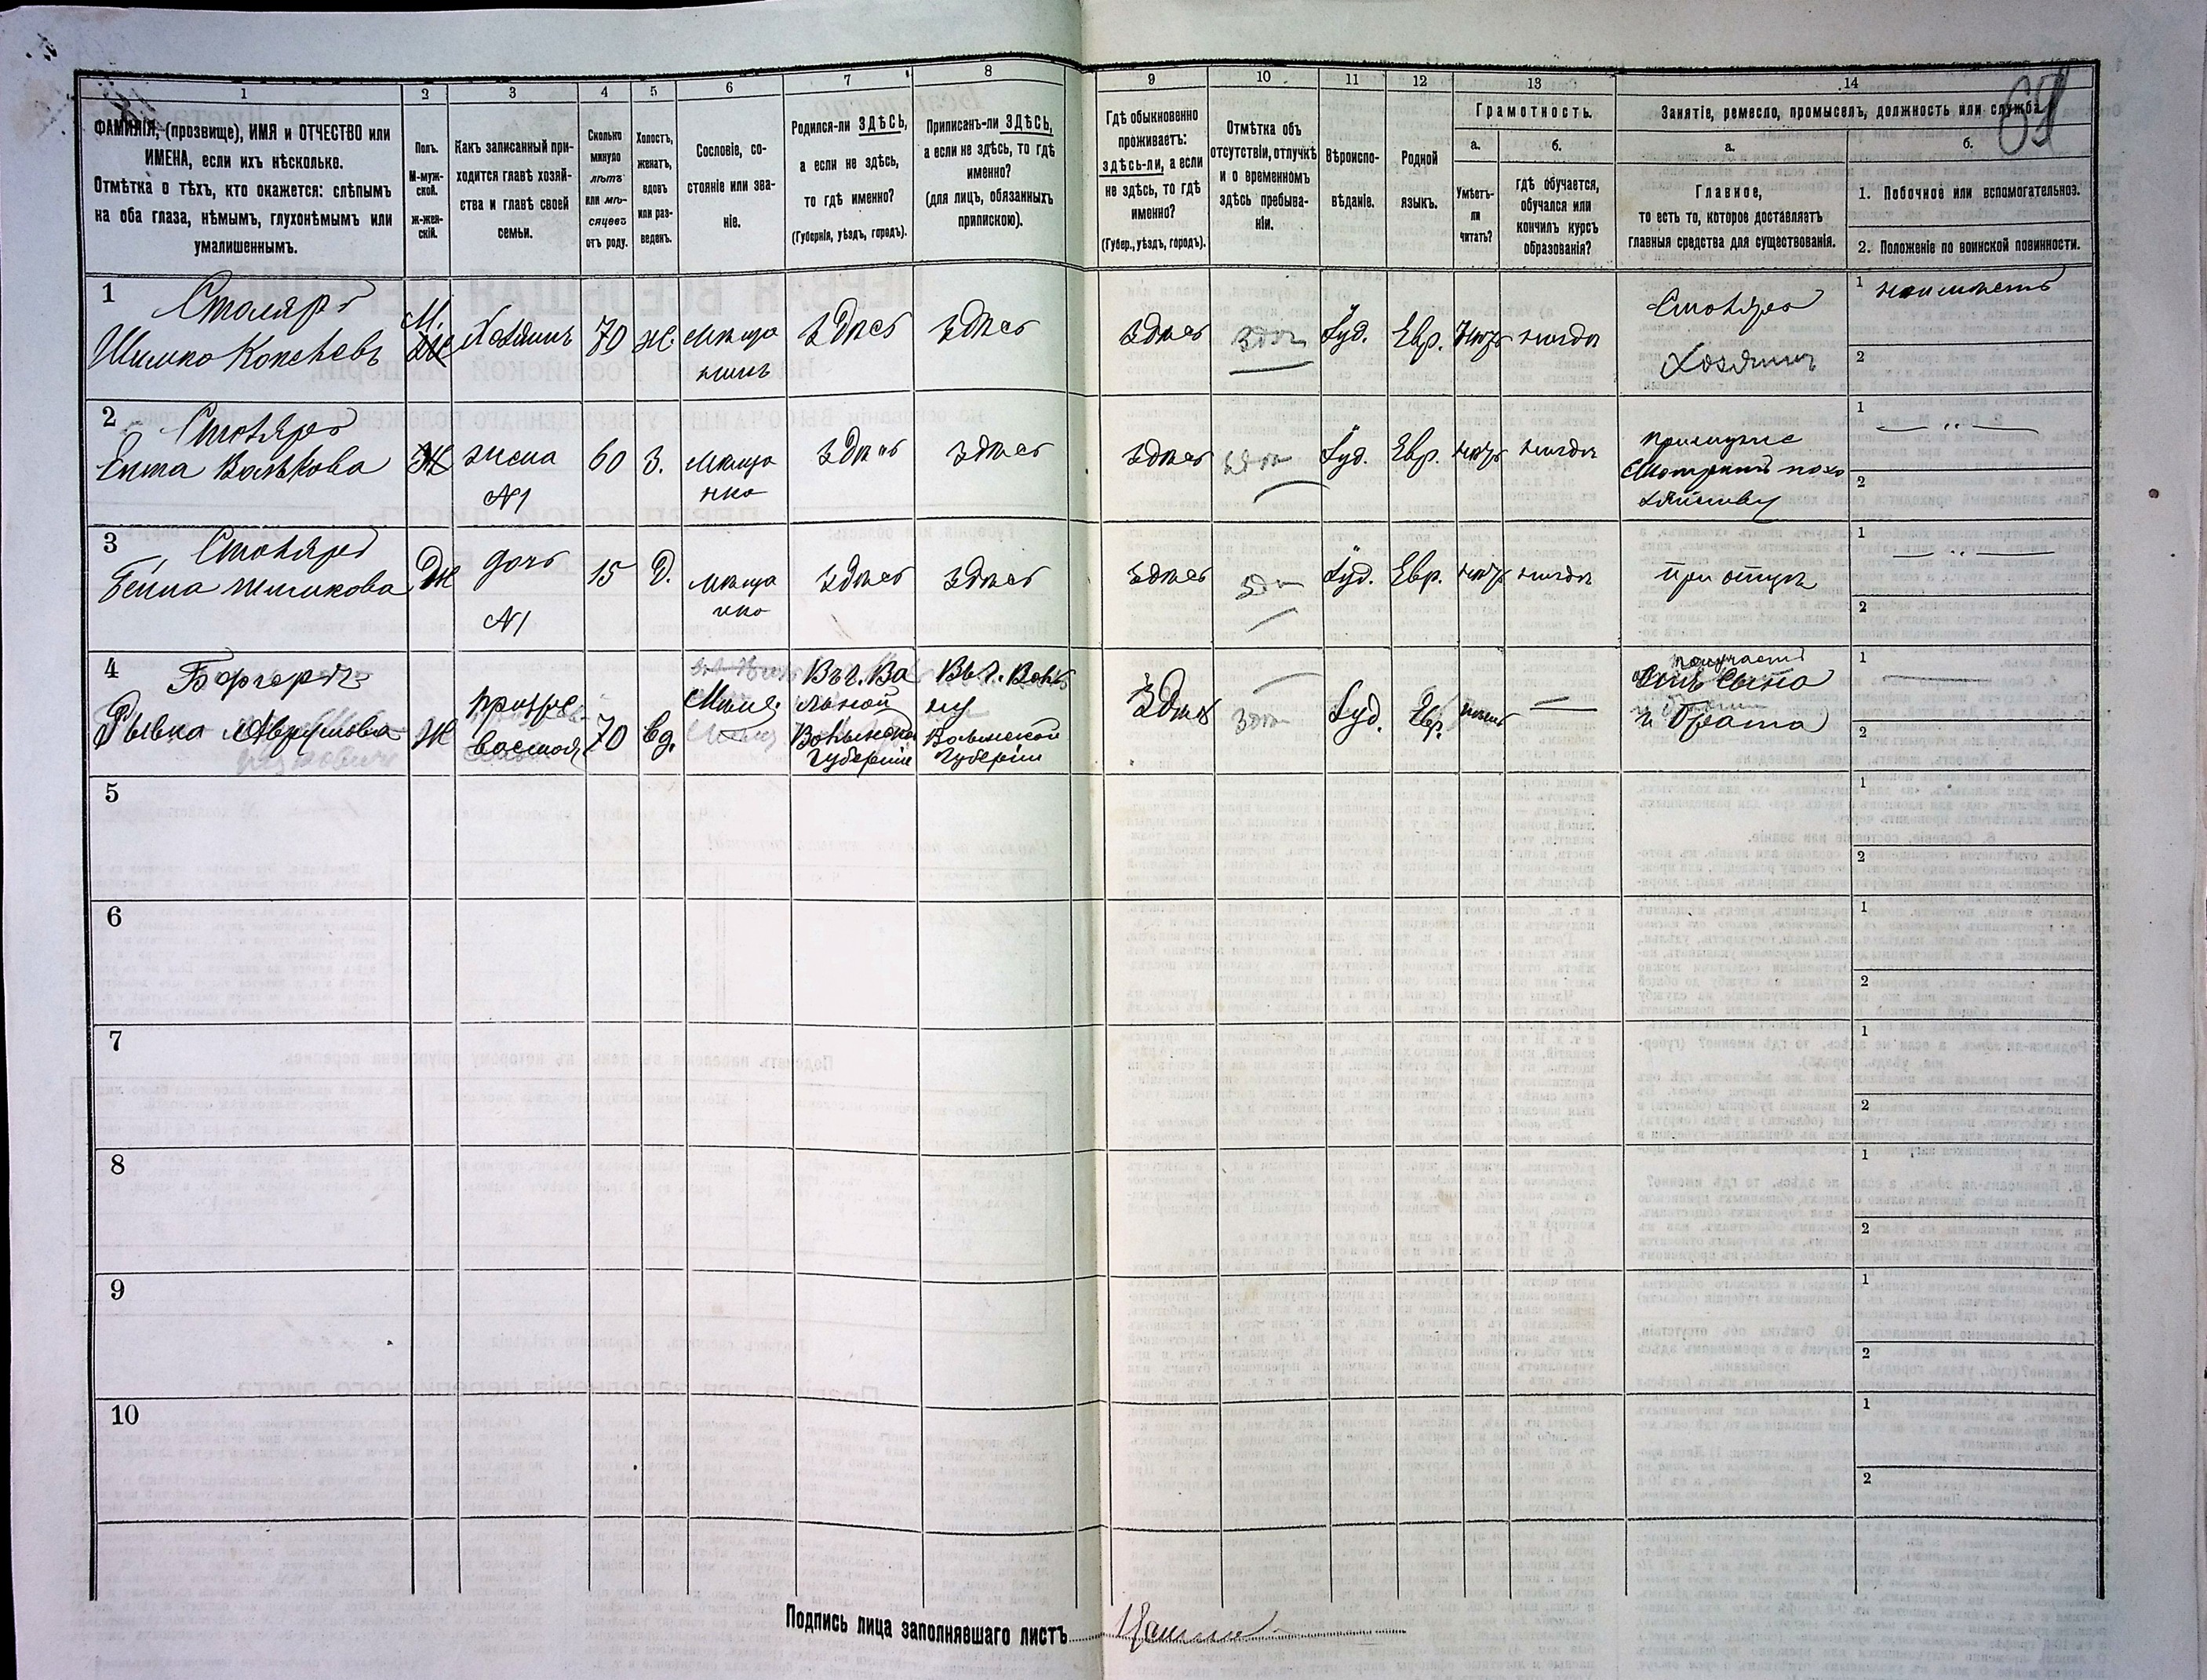 1 2 3 4 5 6 7 8 9 10 11 12 13 14
69
ФАМИЛІЯ, (прозвище), ИМЯ и ОТЧЕСТВО или
ИМЕНА, если ихъ нѣсколько.
Отмѣтка о тѣхъ, кто окажется: слѣпымъ
на оба глаза, нѣмымъ, глухонѣмымъ или
умалишеннымъ.
Полъ.
М-муж-
ской.
ж-жен-
скій.
Какъ записанный при-
ходится главѣ хозяй-
ства и главѣ своей
семьи.
Сколько
минуло
лѣтъ
или мѣ-
сяцевъ
отъ роду.
Холостъ,
женатъ,
вдовъ
или раз-
веденъ.
Сословіе, со-
стояніе или зва-
ніе.
Родился-ли ЗДѢСЬ,
а если не здѣсь,
то гдѣ именно?
(Губернія, уѣздъ, городъ).
Приписанъ-ли ЗДѢСЬ,
а если не здѣсь, то гдѣ
именно?
(для лицъ, обязанныхъ
припискою).
Гдѣ обыкновенно
проживаетъ:
здѣсь-ли, а если
не здѣсь, то гдѣ
именно?
(Губер., уѣздъ, городъ).
Отмѣтка объ
отсутствіи, отлучкѣ
и о временномъ
здѣсь пребыва-
ніи.
Вѣроиспо-
вѣданіе.
Родной
языкъ.
Грамотность.
а.
Умѣетъ-
ли
читать?
б.
гдѣ обучается,
обучался или
кончилъ курсъ
образованія?
Занятіе, ремесло, промыселъ, должность или служба.
а.
Главное,
то есть то, которое доставляетъ
главныя средства для существованія.
б.
1. Побочное или вспомогательное.
2. Положеніе по воинской повинности.
1
Столяръ
Шимко
М.
Хозяинъ
70
ж.
Мѣща
нинъ
Здѣсь
Здѣсь
Здѣсь
Іуд.
Евр.
Столяръ
Хозяинъ
1
2
2
Столяръ
Ента Волькова
Ж
жена
N1
60
З.
Мѣща
нка
Здѣсь
Здѣсь
Здѣсь
Іуд.
Евр.
при мужѣ
1
2
3
Столяръ
Бейла Шимкова
Ж
дочь
N1
15
Д.
Мѣща
нка
Здѣсь
Здѣсь
Здѣсь
Іуд.
Евр.
при отцѣ
1
2
4
Рывка
Ж
70
вд.
Мѣщ.
Волынской
Губерніи
Волынской
Губерніи
Здѣсь
Іуд.
Евр.
получаетъ
сына
и брата
1
2
5
1
2
6
1
2
7
1
2
8
1
2
9
1
2
10
1
2
Подпись лица заполнявшаго листъ